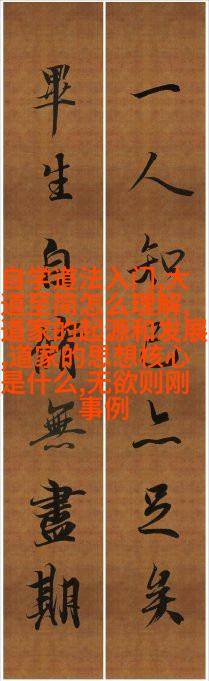 一人知己亦足矣
畢生自無盡期
自学道法入门,大
道至简怎么理解,
道家的起源和发展
,道家的思想核心
是什么,无欲则刚
事例